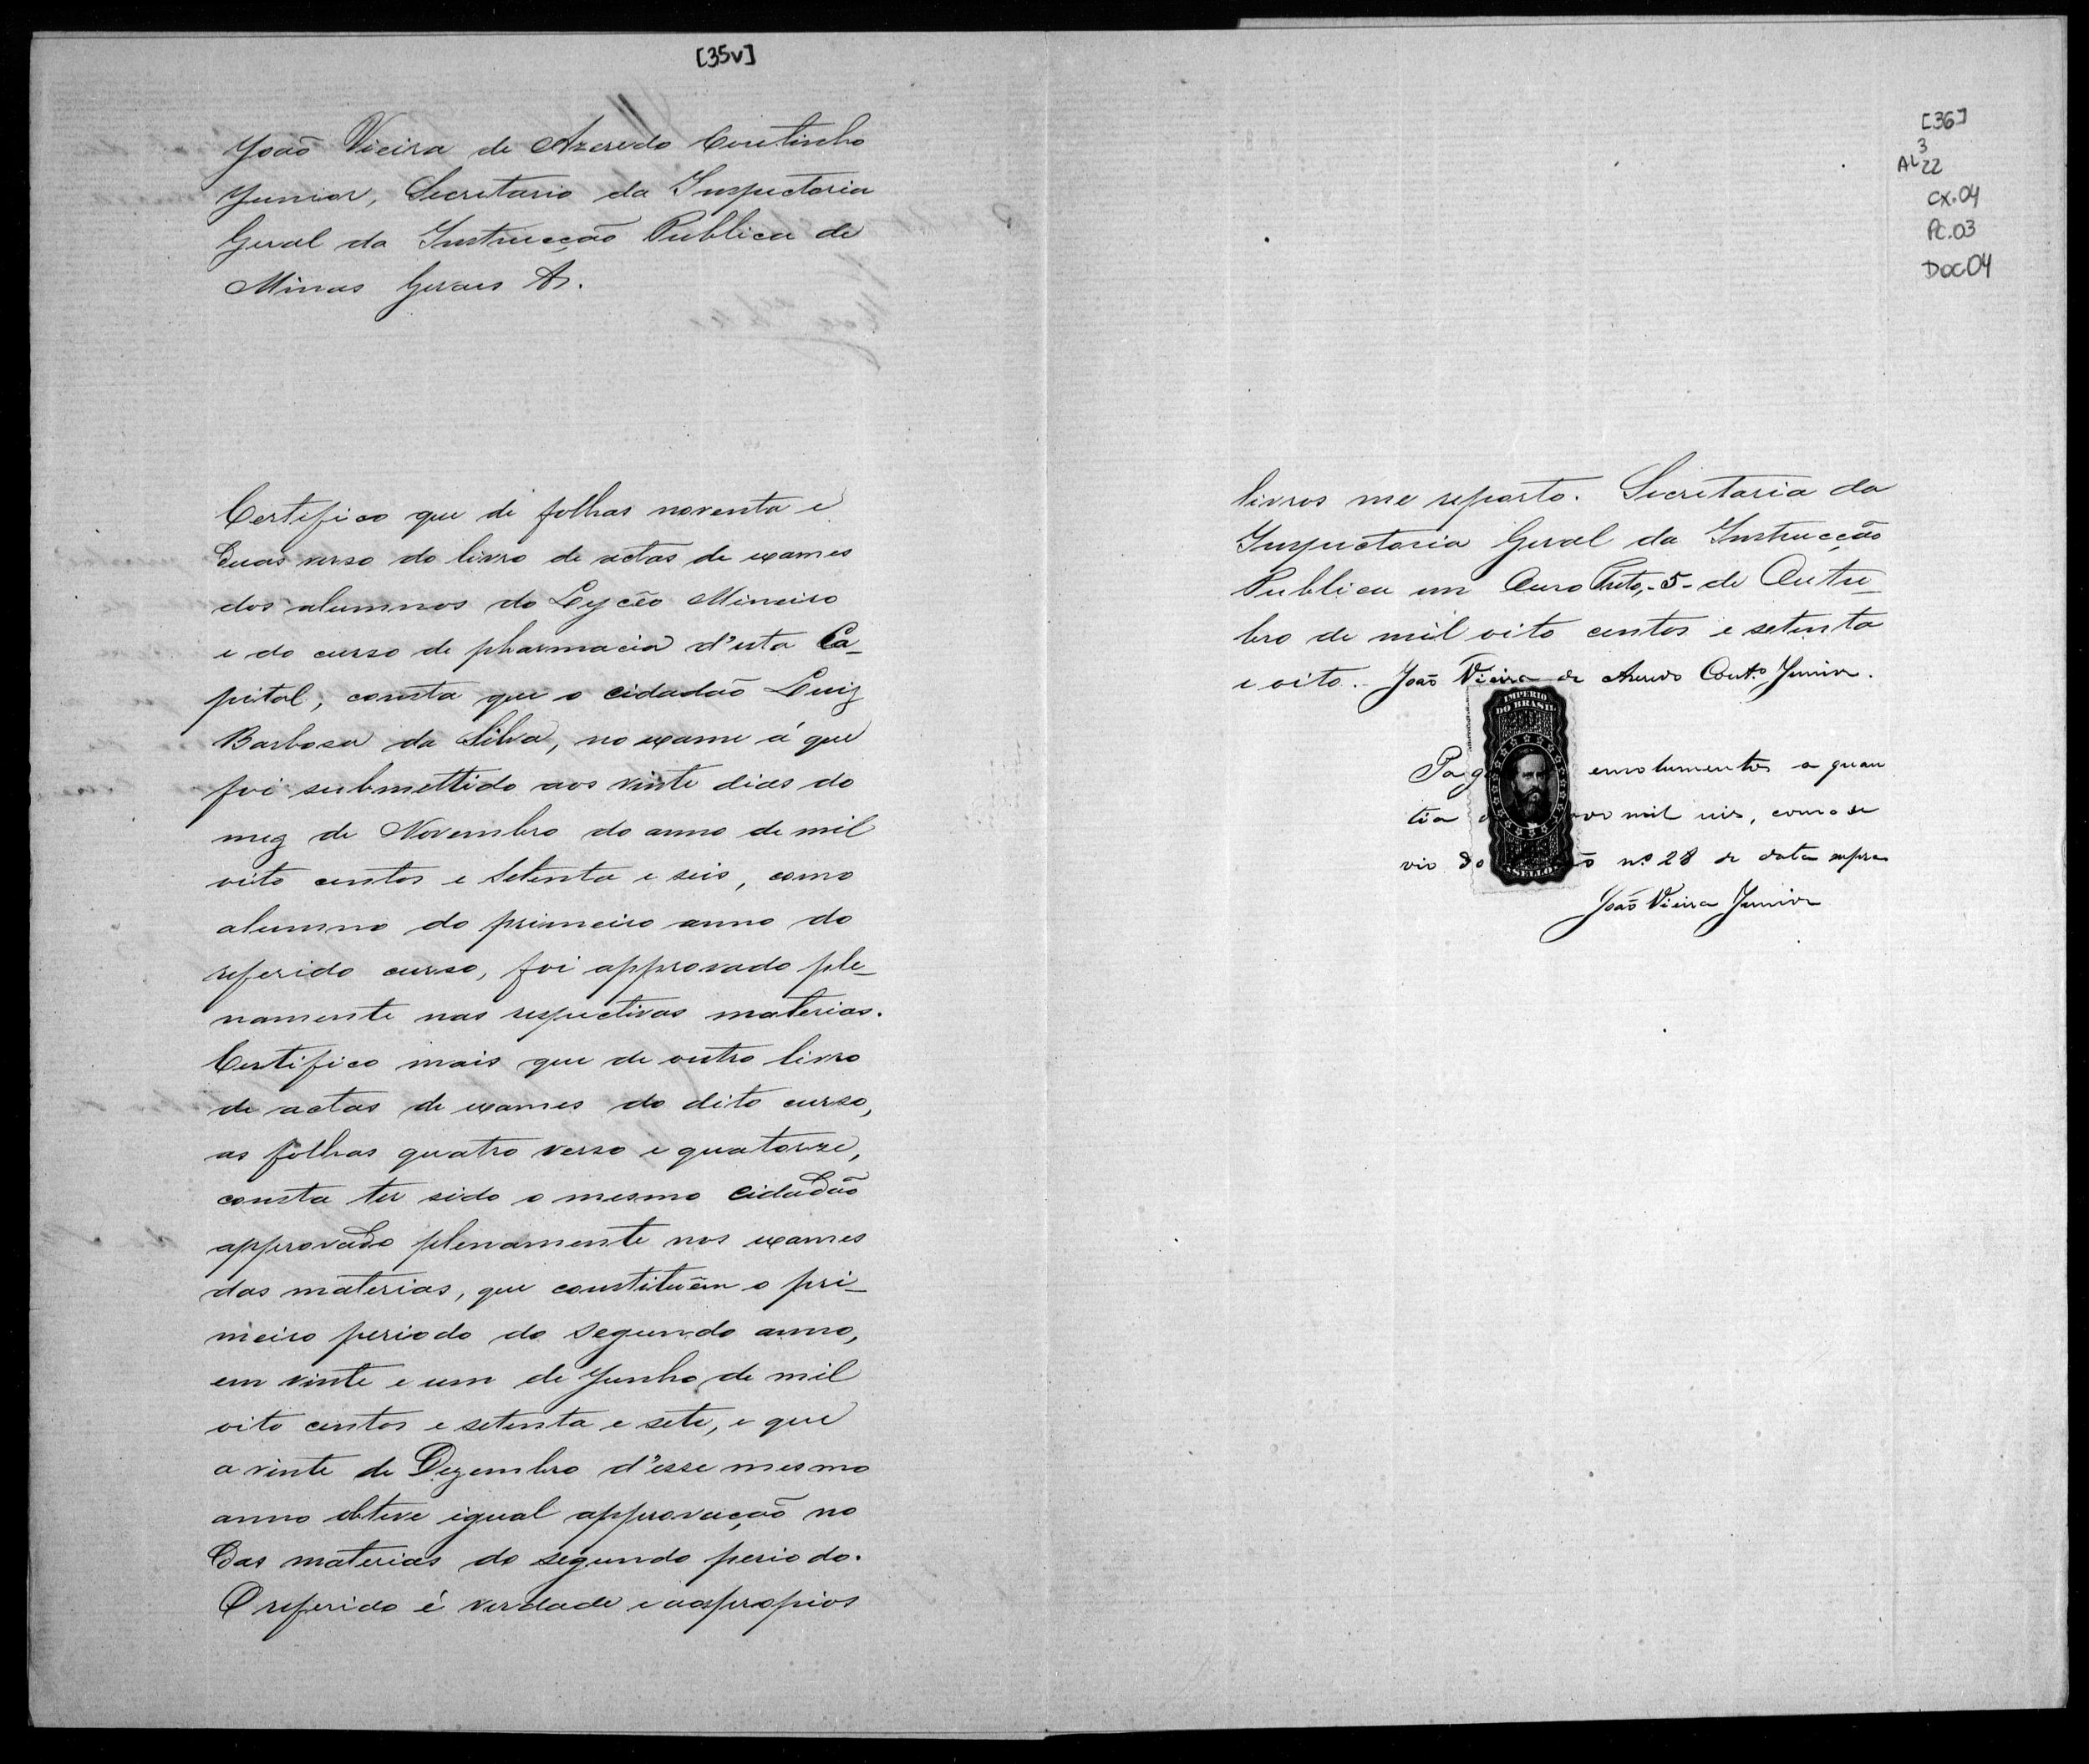 [35v]
João Vieira de Azeredo Coutinho
Junior, Secretario da Inspectoria
Geral da Instrucção Publica de
Minas Geraes &.
Certifico que de folhas noventa e
duas verso do livro de actas de exames
dos alumnos do Lycêo Mineiro
e do curso de pharmacia d'esta Ca_
pital, consta que o cidadão Luiz
Barbosa da Silva, no exame á que
foi submettido aos vinte dias do
mez de Novembro do anno de mil
oito centos e setenta e seis, como
alumno do primeiro anno do
referido curso, foi approvado ple_
namente nas respectivas materias.
Certifico mais que de outro livro
de actas de exames do dito curso,
as folhas quatro verso e quatorze,
consta ter sido o mesmo cidadão
approvado plenamente nos exames
das materias, que constituêm o pri_
meiro periodo do segundo anno,
em vinte e um de Junho de mil
oito centos e setenta e sete, e que
a vinte de Dezembro d'esse mesmo
anno obteve igual approvação no
das materias do segundo periodo.
O referido é verdade e aos propios
[36]
3
AL 22
CX.04
PC.03
DOC04
livros me reporto. Secretaria da
Inspectoria Geral da Instrucção
Publica em Ouro Preto, -5- de Outu_
bro de mil oito centos e setenta
e oito. João Vieira de Azeredo Cout.º Junior.
IMPERIO
DO BRASIL
Pag emolumentos a quan
tia mil reis, como se
vio do nº 28 de data supra
SELLO
João Vieira Junior